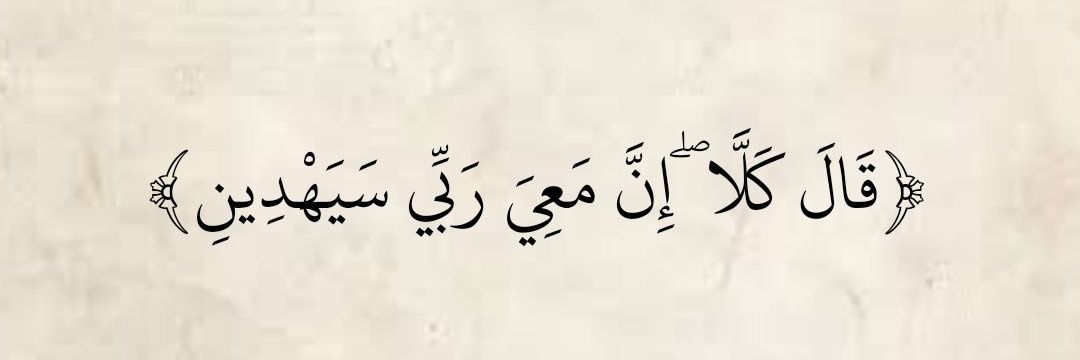 ﴿قَالَ كَلَّا ۖ إِنَّ مَعِيَ رَبِّي سَيَهْدِينِ﴾